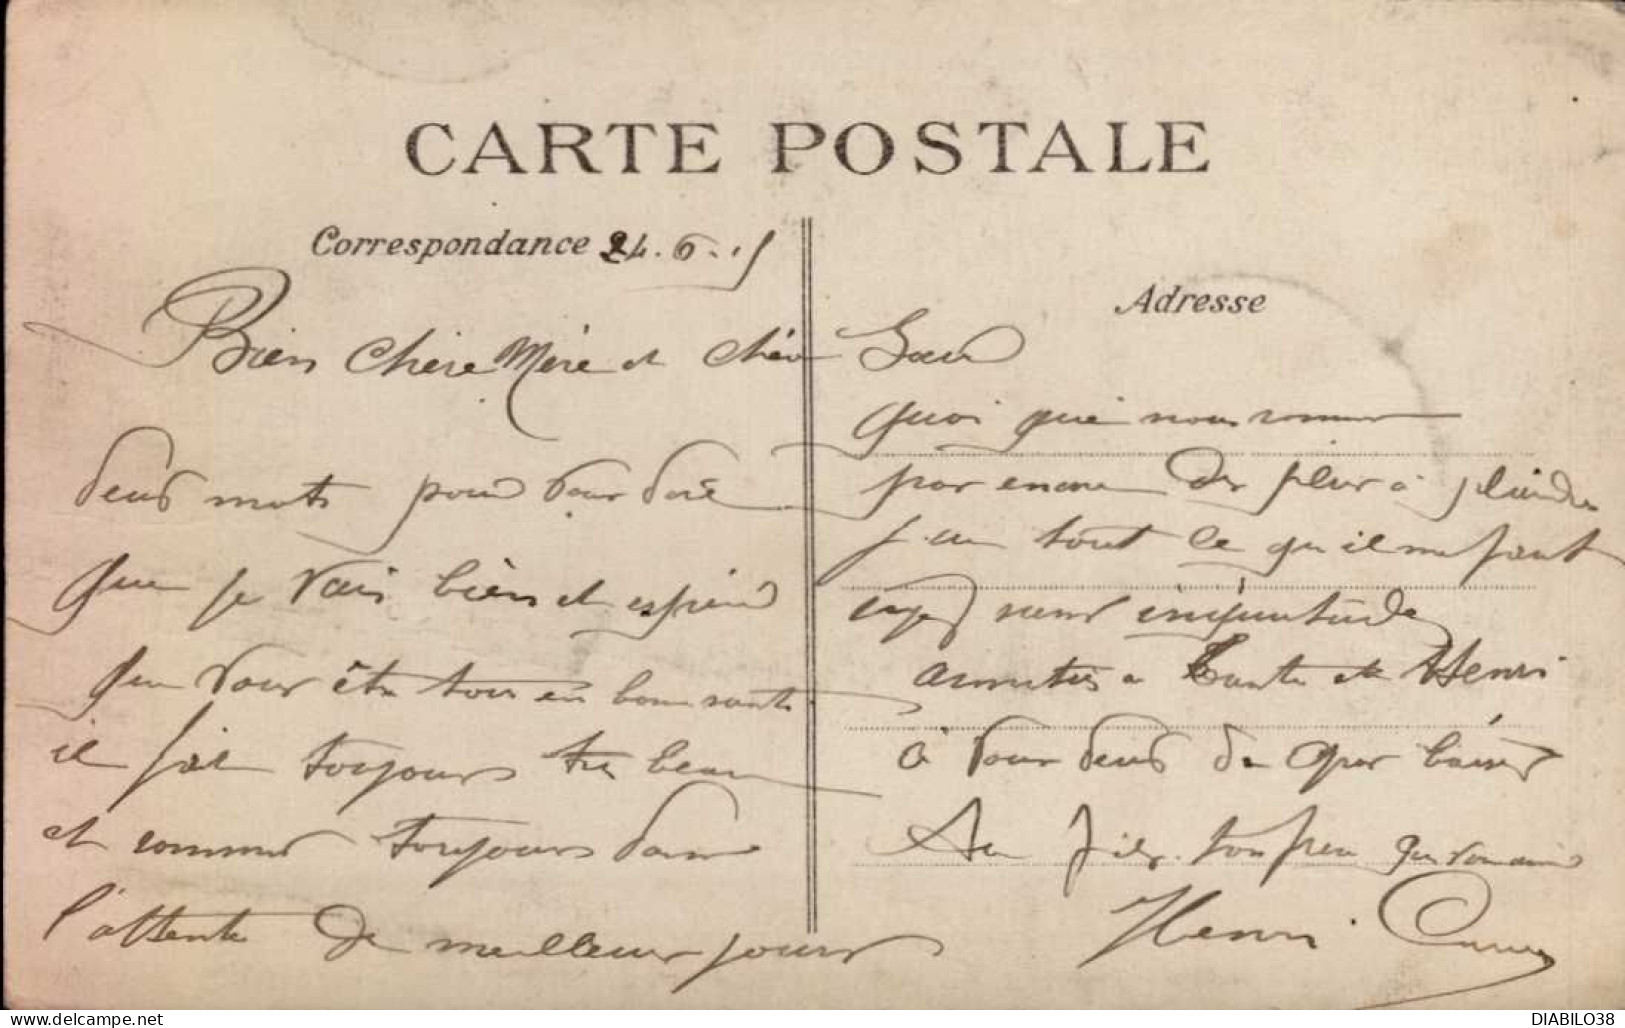 CARTE POSTALE
Correspondance 24.6.15
Adresse
Bien Chère Mère et chère Soeur
deux mots pour vous dire
que je vais bien et espère
que vous ête tous en bonne santé
il fait toujours très beau
et sommes toujours dans
l'attente de meilleur jours
quoi que nous sommes
pas encore des plus à plaindre
j'ai tout ce qu'il me faut
ayez sens inquiétude
amitiés a Tante et Henri
à vous deux de gros baiser
ton fils ton frère qui vous aime
Henri
DIABILO38